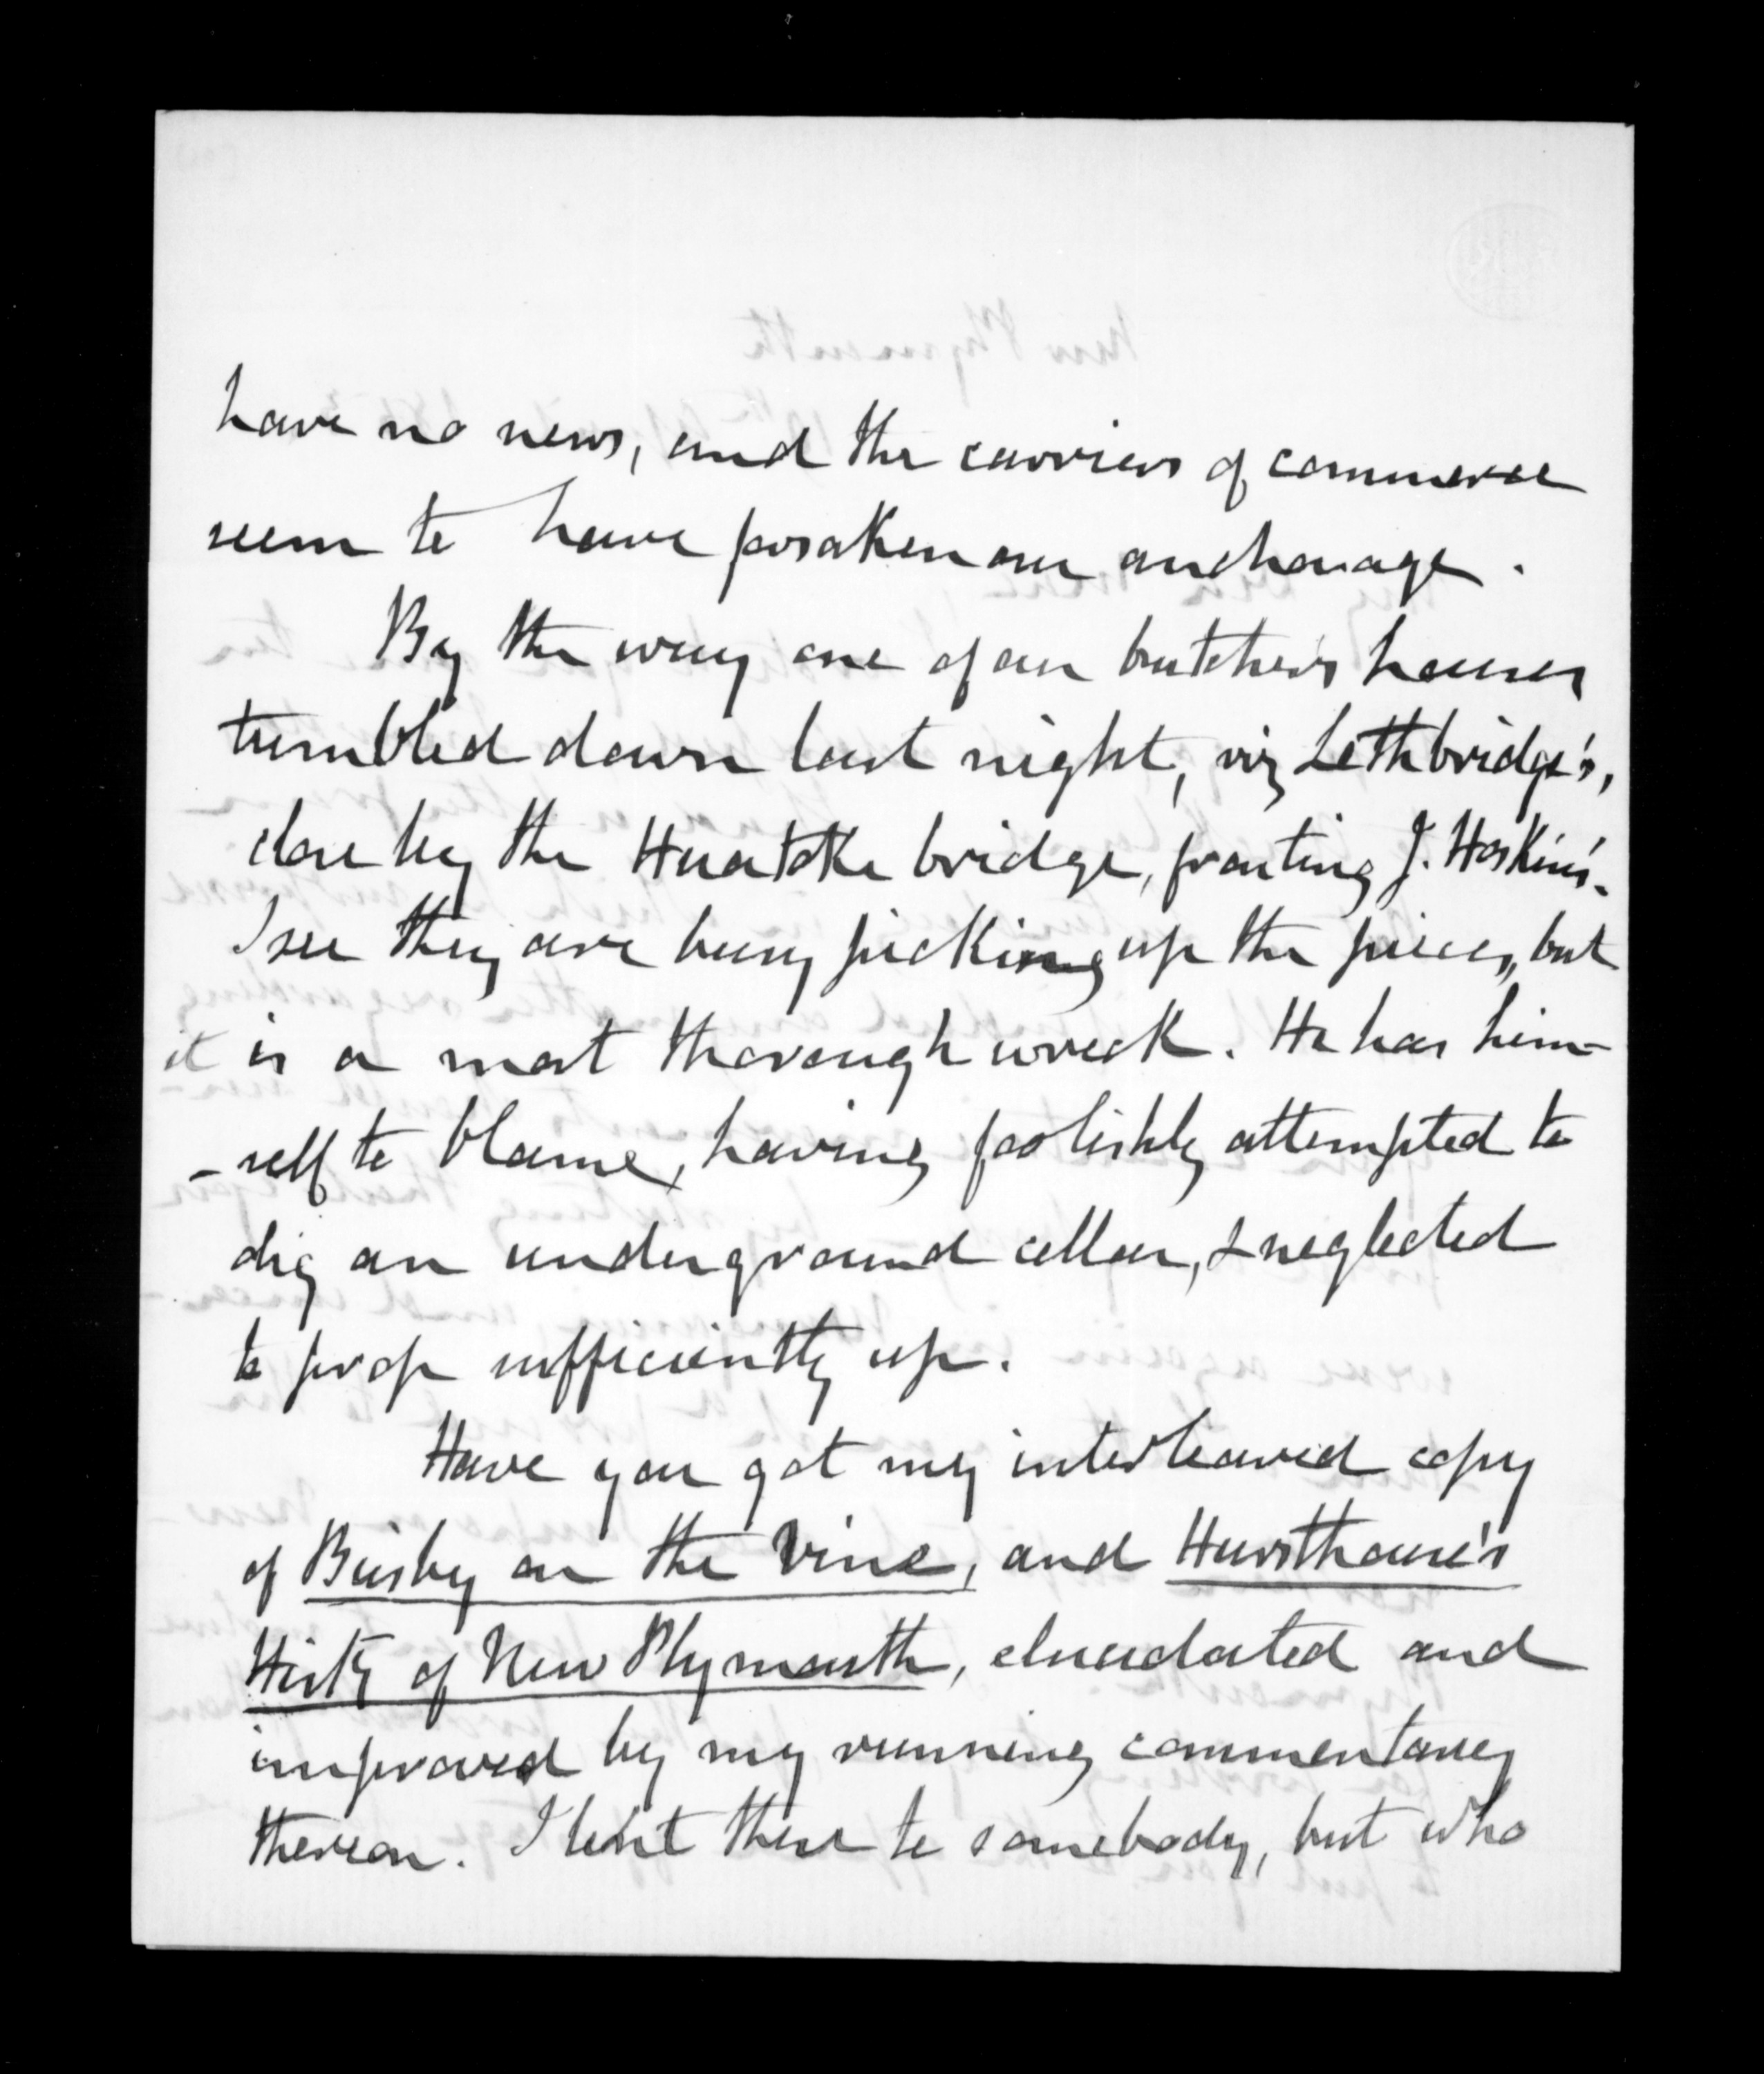 have no news, and the carriers of commerce
seem to have forsaken our anchorage.
By the way one of our butcher's houses
tumbled down last night, viz Lethbridge's,
close by the Huatoke bridge, fronting J. Hoskin's.
I see they are busy picking up the pieces, but
it is a most thorough wreck. He has him-
-self to blame, having foolishly attempted to
dig an underground cellar, & neglected
to prop sufficiently up.
Have you got my interleaved copy
of Busby on the Vine, and Hursthouse's
Histy of New Plymouth, elucidated and
improved by my running commentary
thereon. I lent these to somebody, but who